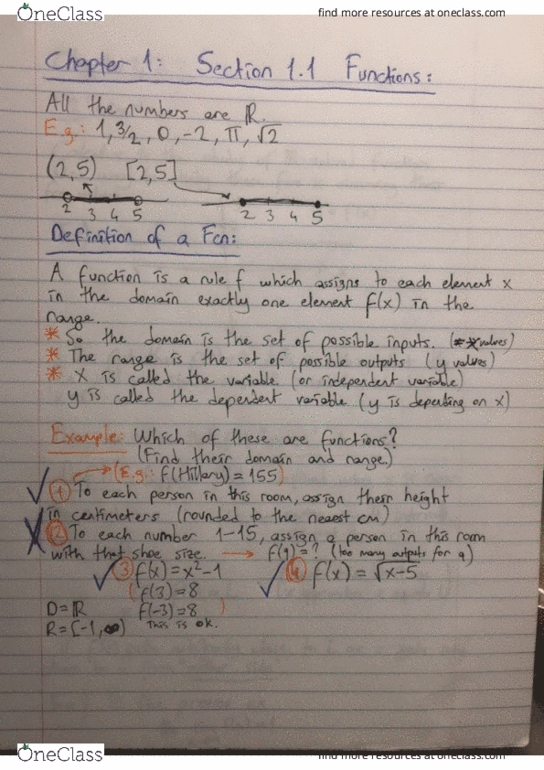 OneClass
find more resources at oneclass.com
Chapter 1: Section 1.1 Functions:
All the numbers are ℝ.
E.g.: 1, 3/2, 0, -2, π, √2
(2,5) [2,5]
2 3 4 5 2 3 4 5
Definition of a Fcn:
A function is a rule f which assigns to each element x
in the domain exactly one element f(x) in the
range.
* So the domain is the set of possible inputs. (x values)
* The range is the set of possible outputs (y values)
* x is called the variable (or independent variable)
y is called the dependent variable (y is depending on x)
Example: Which of these are functions?
(Find their domain and range.)
(E.g.: f(Hillary) = 155)
✓ 1 To each person in this room, assign their height
in centimeters (rounded to the nearest cm)
✗ 2 To each number 1-15, assign a person in this room
with that shoe size. → f(9) = ? (too many outputs for 9)
✓ 3 f(x) = x² - 1 ✓ 4 f(x) = √x-5
(f(3) = 8
D = ℝ f(-3) = 8 )
R = [-1, ∞) This is ok.
OneClass
find more resources at oneclass.com